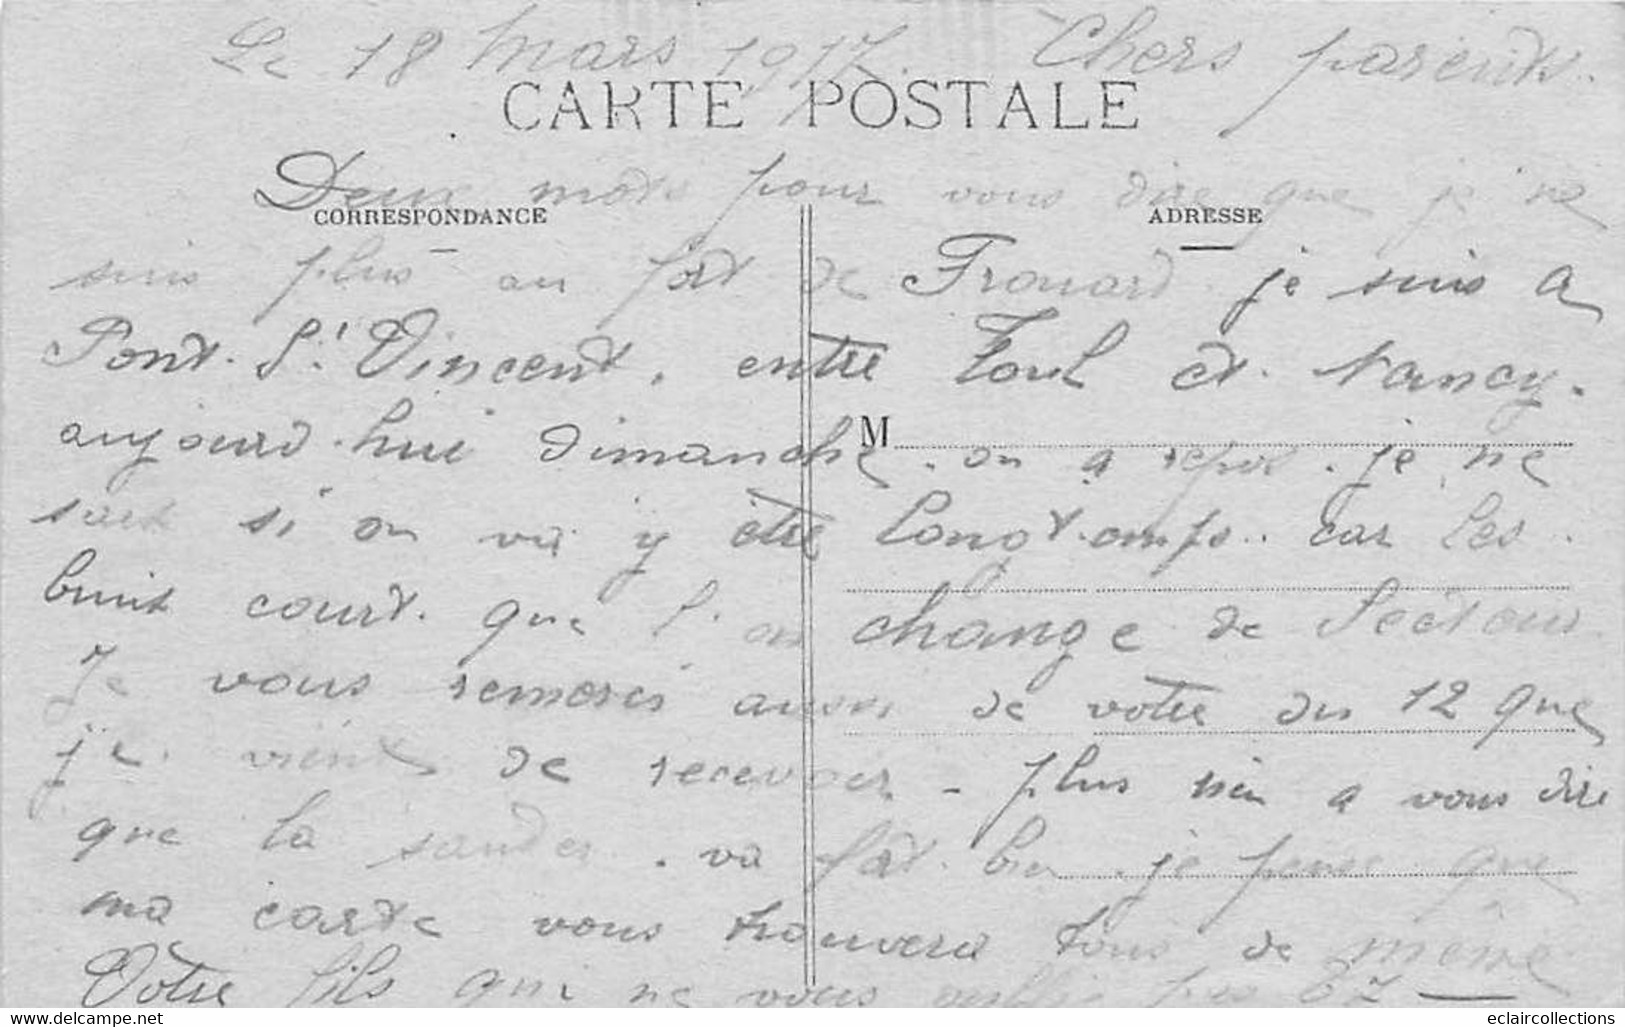 Le 18 Mars 1917. Chers parents.
CARTE POSTALE
Deux mots pour vous dire que je ne
CORRESPONDANCE
ADRESSE
suis plus au fort de Frouard je suis a
Pont. St. Vincent. entre Toul et. Nancy.
M
aujourd.hui Dimanche. on a repos. je ne
sait si on va y être longt.emps. car les
bruit court. que l'on change de Secteur
Je vous remercis aussi de votre du 12 que
je vient de recevoir - plus rien a vous dire
que la santer. va fort bien. je pense que
ma carte vous trouvera tous de même
Votre fils qui ne vous oublie pas
eclaircollections
www.delcampe.net